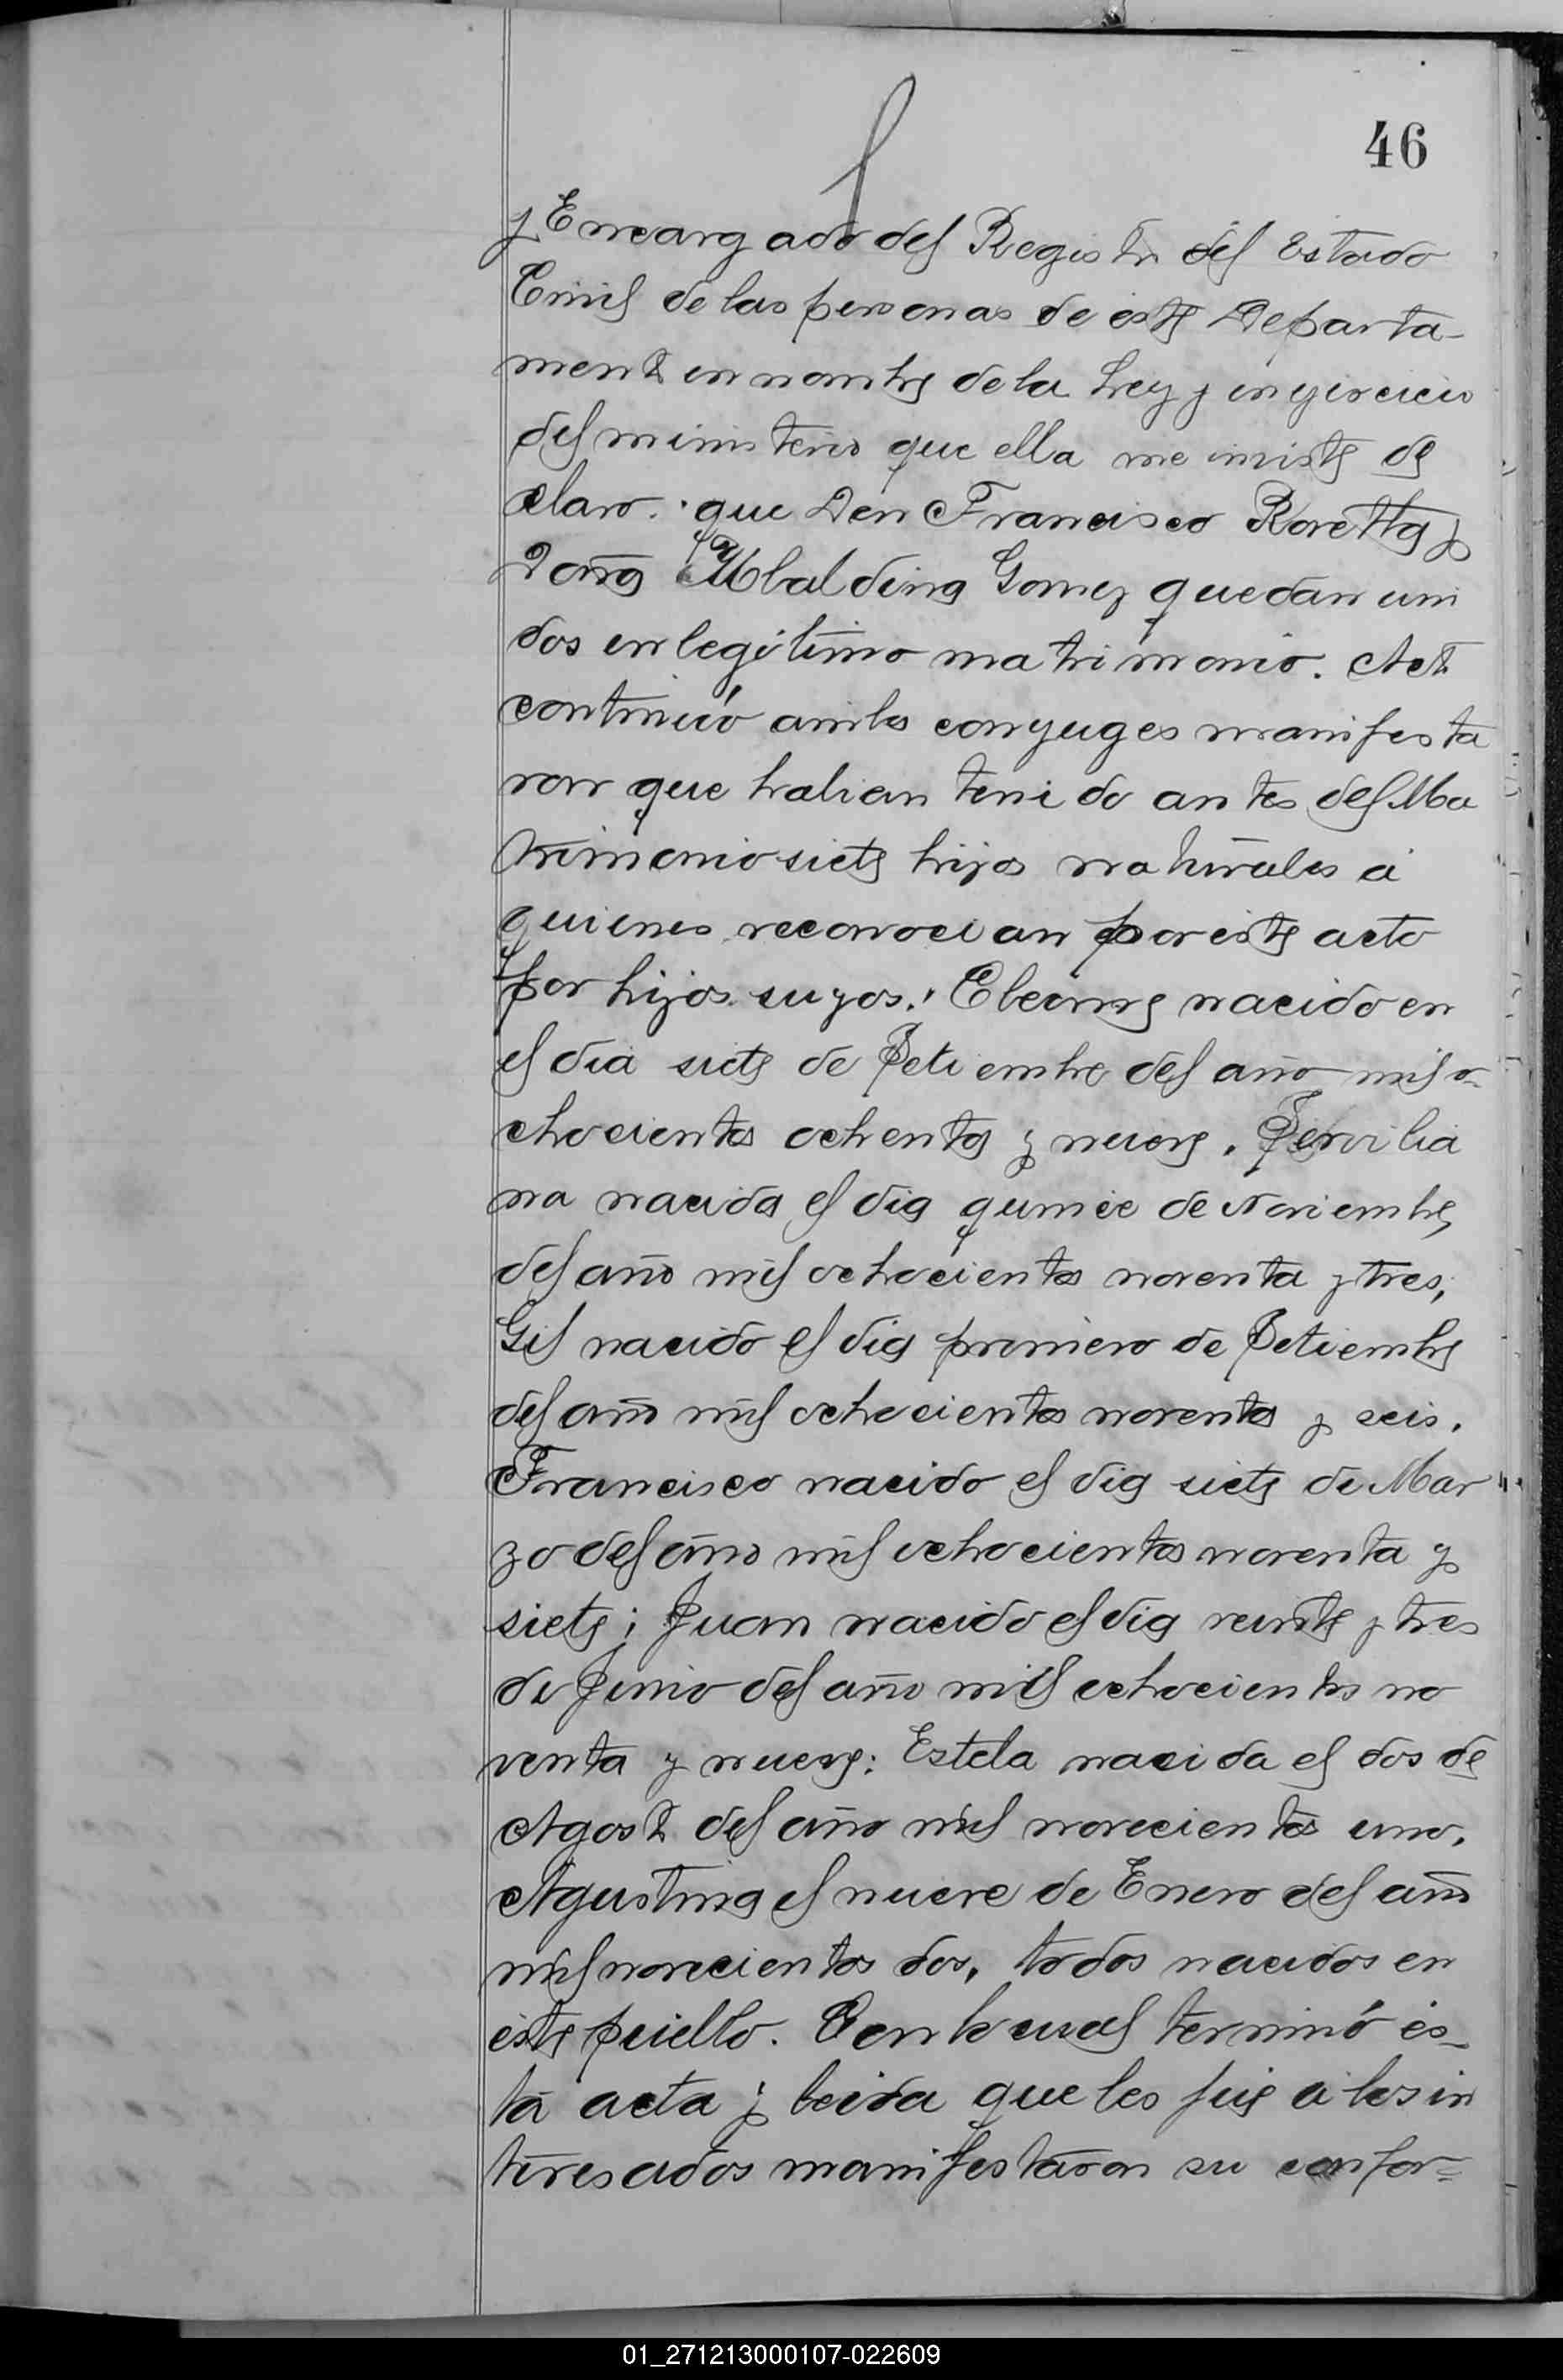 46
y Encargado del Registro del Estado
Civil de las personas de este Departa-
mento en nombre de la Ley y en ejercicio
del ministerio que ella me inviste de
claro: que Don Francisco Roretta y
Doña Ubaldina Gomez quedan uni
dos en legítimo matrimonio. Acto
continuó ambos conyuges manifesta
ron que habian tenido antes del Ma
trimonio siete hijos naturales á
quienes reconocian por este acto
por hijos suyos: Eleonne nacido en
el día siete de Setiembre del año mil o-
chocientos ochenta y nueve. Servilia
na nacida el dia quince de Noviembre
del año mil ochocientos noventa y tres,
Gil nacido el dia primero de Setiembre
del año mil ochocientos noventa y seis.
Francisco nacido el dia siete de Mar
zo del año mil ochocientos noventa y
siete; Juan nacido el dia veinte y tres
de Junio del año mil ochocientos no
venta y nueve: Estela nacida el dos de
Agosto del año mil novecientos uno.
Agustina el nueve de Enero del año
mil novecientos dos, todos nacidos en
este pueblo. Con lo cual terminó es-
ta acta y leida que les fue a los in
teresados manifestaron su confor=
01_271213000107-022609